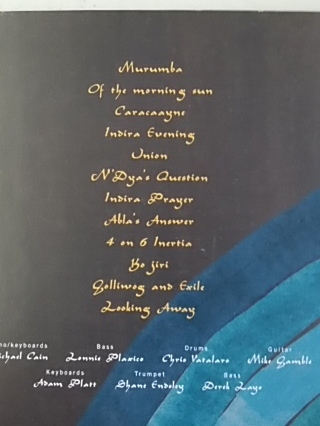 Murumba
Of the morning sun
Caracaayne
Indira Evening
Union
N'Dya's Question
Indira Prayer
Abla's Answer
4 on 6 Inertia
Ko jiri
Golliwog and Exile
Looking Away
no/keyboards Bass Drums Guitar
ichael Cain Lonnie Plaxico Chris Vatalaro Mike Gamble
Keyboards Trumpet Bass
Adam Platt Shane Endsley Derek Layo